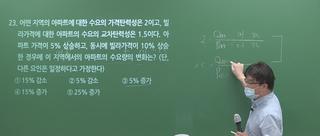 23. 어떤 지역의 아파트에 대한 수요의 가격탄력성은 2이고, 빌
라가격에 대한 아파트의 수요의 교차탄력성은 1.5이다. 아
파트 가격이 5% 상승하고, 동시에 빌라가격이 10% 상승
한 경우에 이 지역에서의 아파트의 수요량의 변화는? (단,
다른 요인은 일정하다고 가정한다)
① 15% 감소 ② 5% 감소 ③ 5% 증가
④ 15% 증가 ⑤ 25% 증가